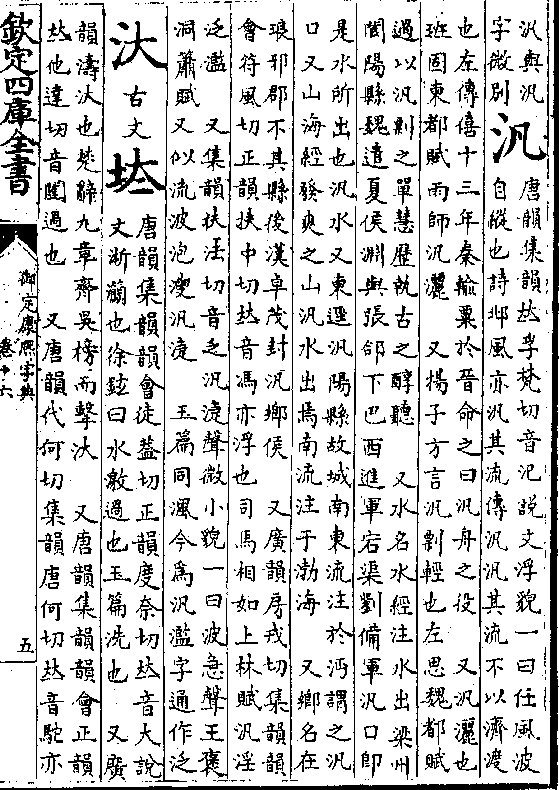 汎與汜
字微別汎唐韻集韻𠀤孚梵切音氾說文浮貌一曰任風波
自縱也詩邶風亦汎其流傳汎汎其流不以濟渡
也左傳僖十三年秦輸粟於晉命之曰汎舟之役　又汎灑也
班固東都賦雨師汎灑　又揚子方言汎剽輕也左思魏都賦
過以汎剽之單慧歷執古之醇聽　又水名水經注水出梁州
閬陽縣魏遣夏侯淵與張郃下巴西進軍宕渠劉備軍汎口卽
是水所出也汎水又東逕汎陽縣故城南東流注於沔謂之汎
口又山海經發爽之山汎水出焉南流注于渤海　又鄉名在
琅邪郡不其縣後漢卓茂封汎鄉侯　又廣韻房戎切集韻韻
會符風切正韻扶中切𠀤音馮亦浮也司馬相如上林賦汎淫
泛濫　又集韻扶法切音乏汎㴙聲微小貌一曰波急聲王褒
洞簫賦又似流波泡溲汎㴙　玉篇同渢今爲汎濫字通作泛
汏古文㘷唐韻集韻韻會徒蓋切正韻度奈切𠀤音大說
文淅灡也徐鉉曰水激過也玉篇洗也　又廣
韻濤汏也楚辭九章齊吳榜而擊汏　又唐韻集韻韻會正韻
𠀤他達切音闥過也　又唐韻代何切集韻唐何切𠀤音駝亦
欽定四庫全書
御定康熙字典
卷十六
五